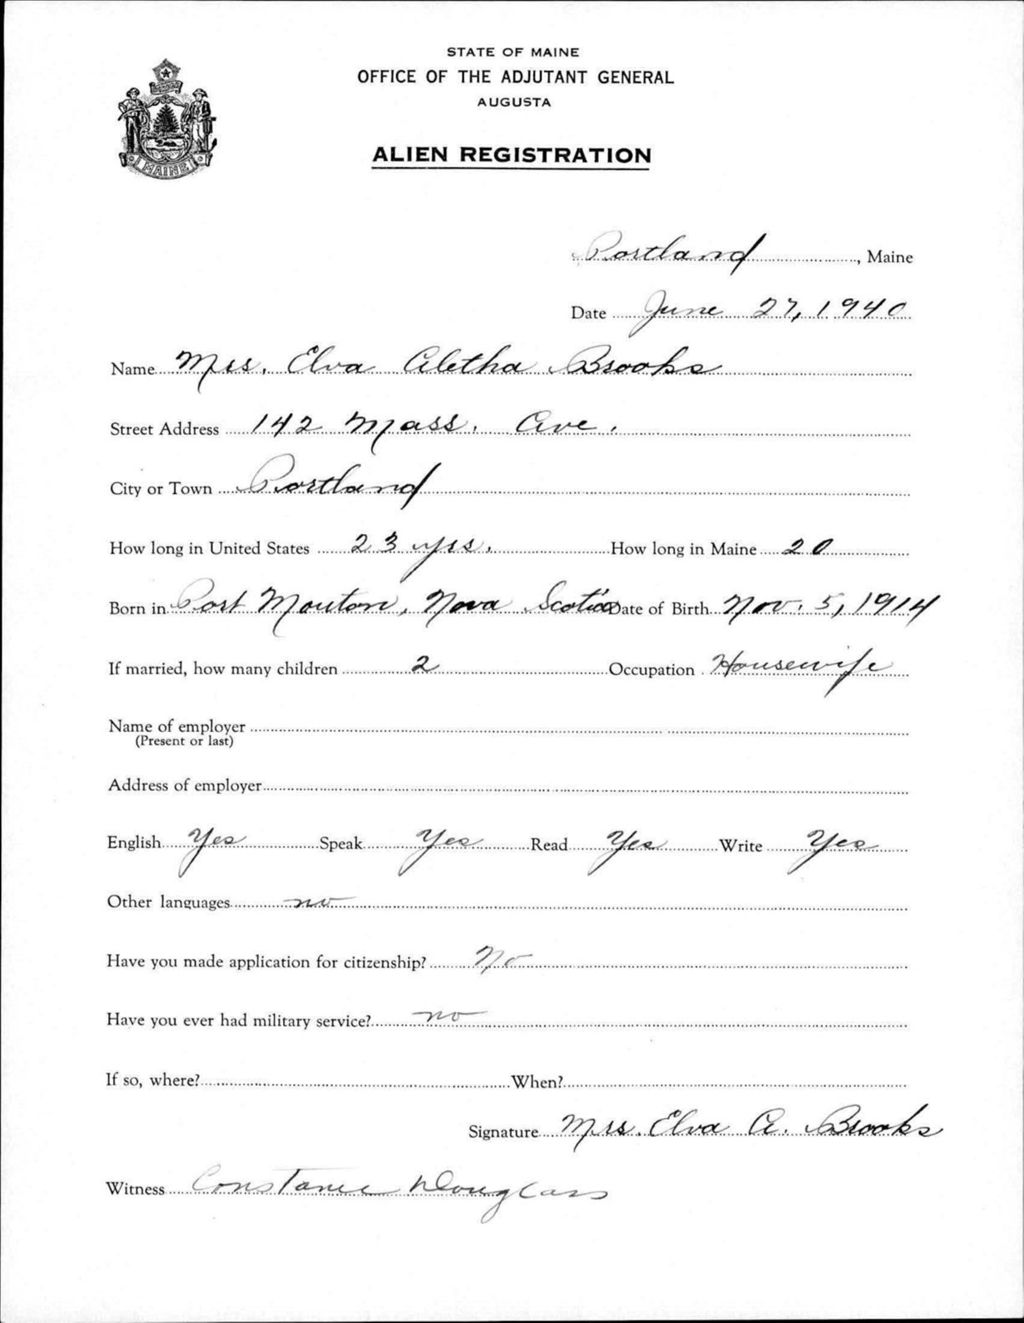 STATE OF MAINE
OFFICE OF THE ADJUTANT GENERAL
AUGUSTA
ALIEN REGISTRATION
MAINE
Portland, Maine
Date June 27, 1940
Name Mrs. Elva Aletha Brooks
Street Address 142 Mass. Ave.
City or Town Portland
How long in United States 23 yrs. How long in Maine 20
Born in Port Mouton, Nova Scotia Date of Birth Nov. 5, 1914
If married, how many children 2 Occupation Housewife
Name of employer
(Present or last)
Address of employer
English Yes Speak Yes Read Yes Write Yes
Other languages no
Have you made application for citizenship? No
Have you ever had military service? no
If so, where? When?
Signature Mrs. Elva A. Brooks
Witness Constance Douglass